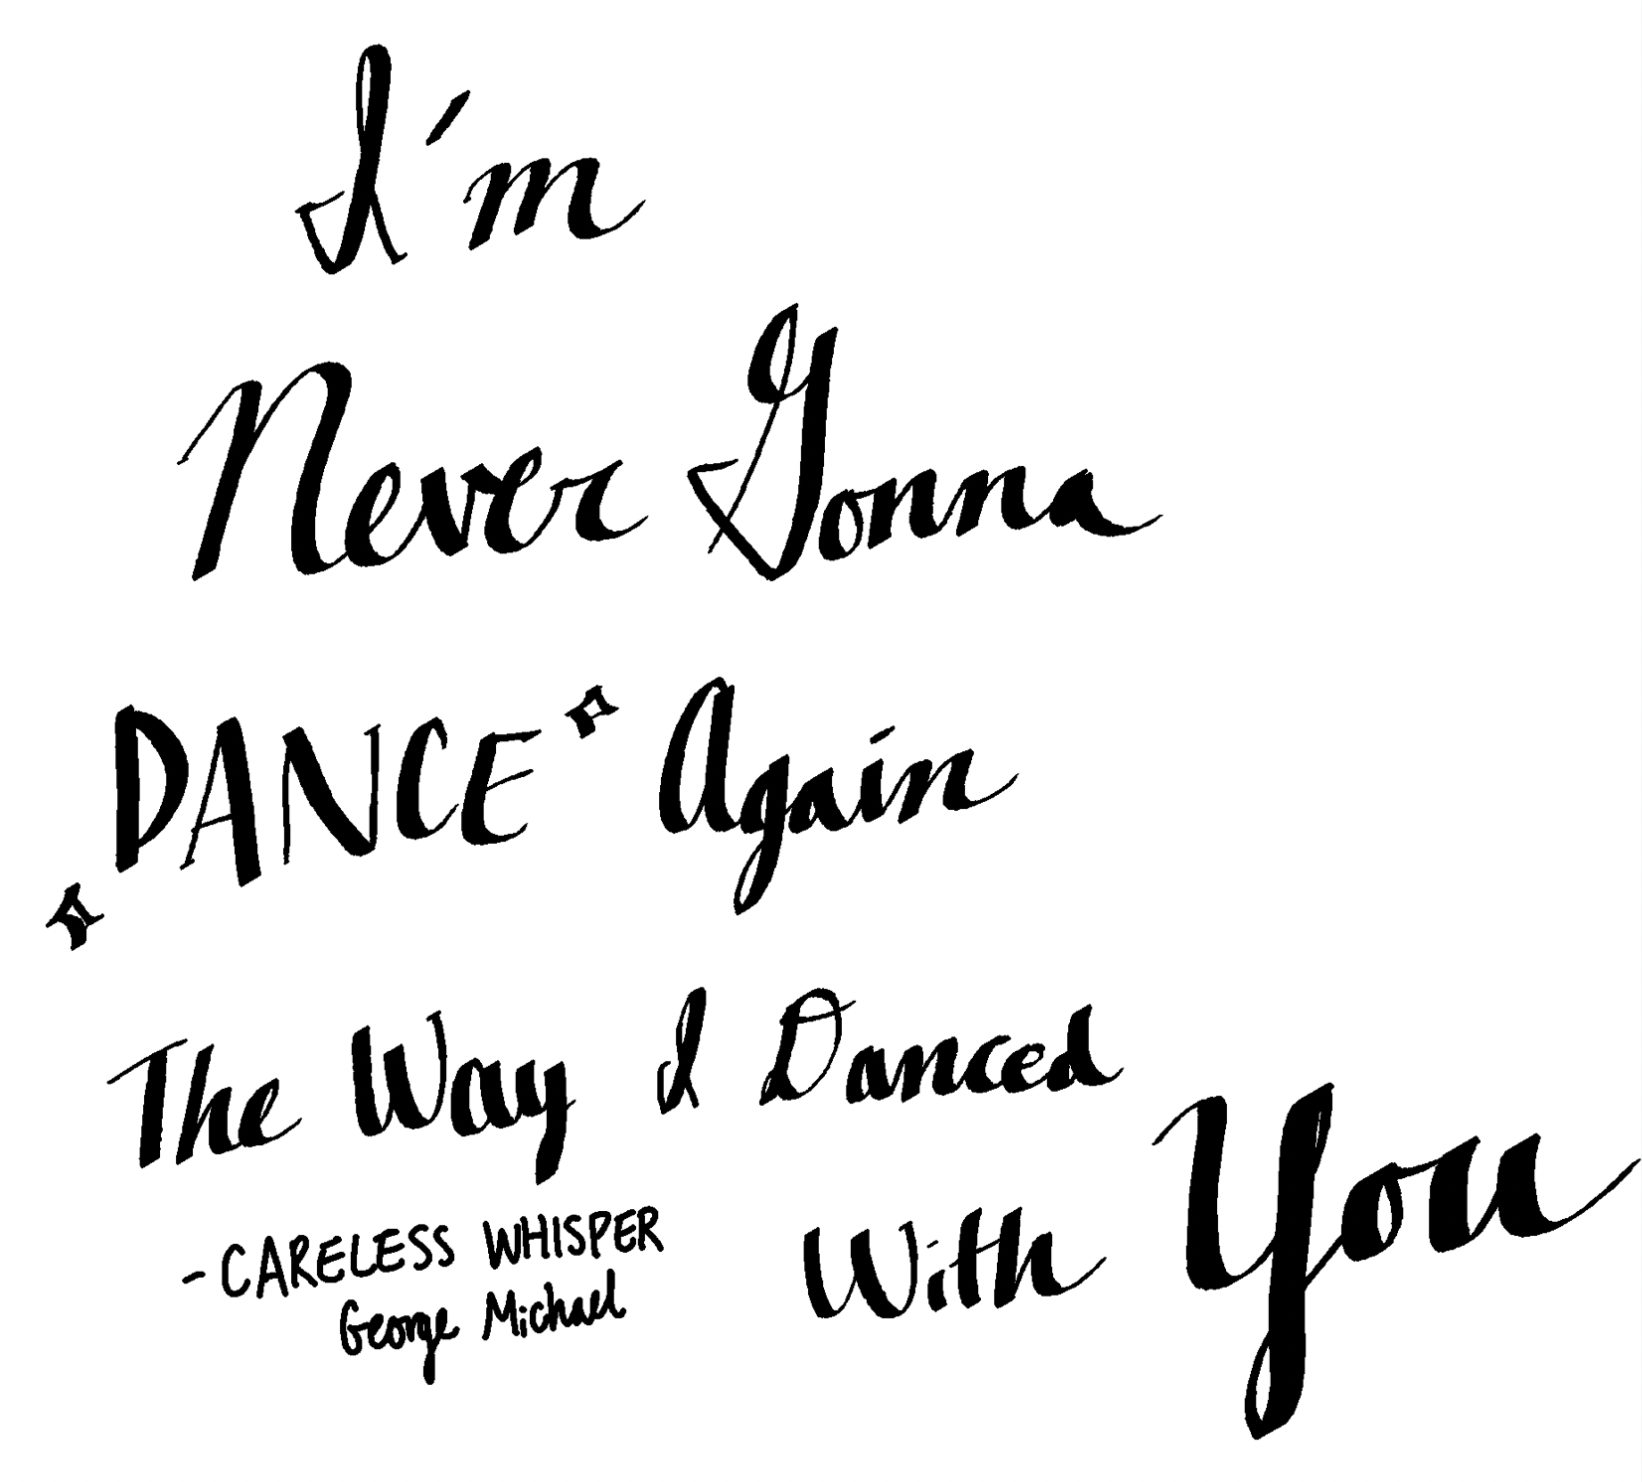 I'm
Never Gonna
DANCE Again
The Way I Danced
With You
- CARELESS WHISPER
George Michael